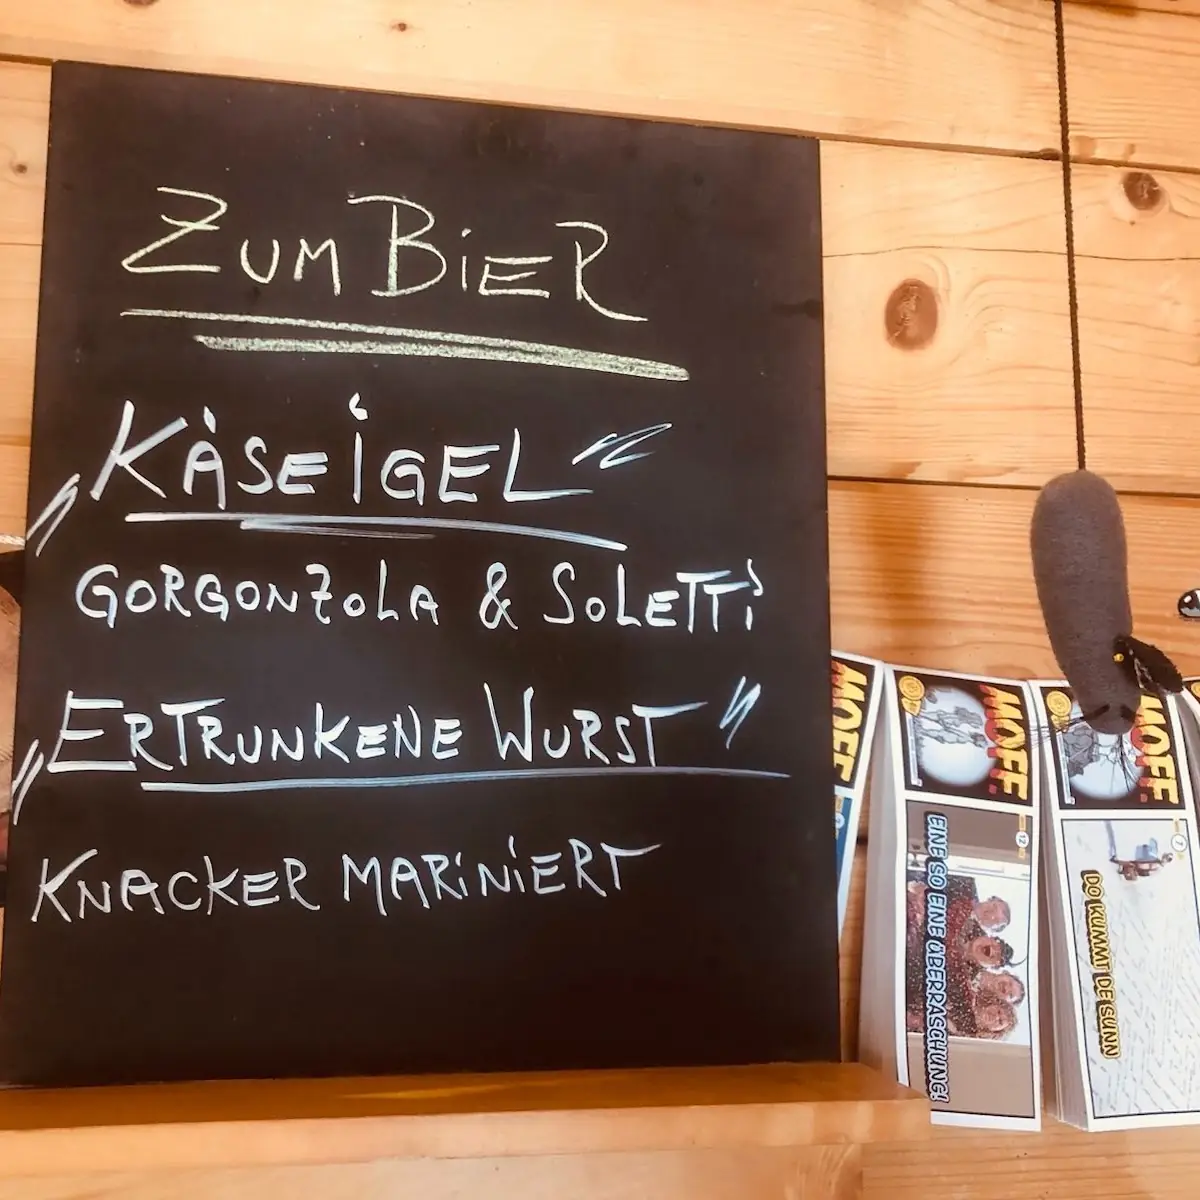 ZUM BIER
„KÄSEIGEL“
GORGONZOLA & SOLETTI
„ERTRUNKENE WURST“
KNACKER MARINIERT
MOFF.
MOFF.
12
EINE SO EINE ÜBERRASCHUNG!
MOFF.
7
DO KUMMT DE SUNN